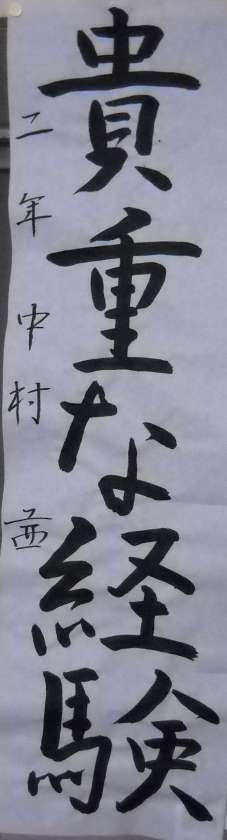 貴重な経験
二年 中村 茜